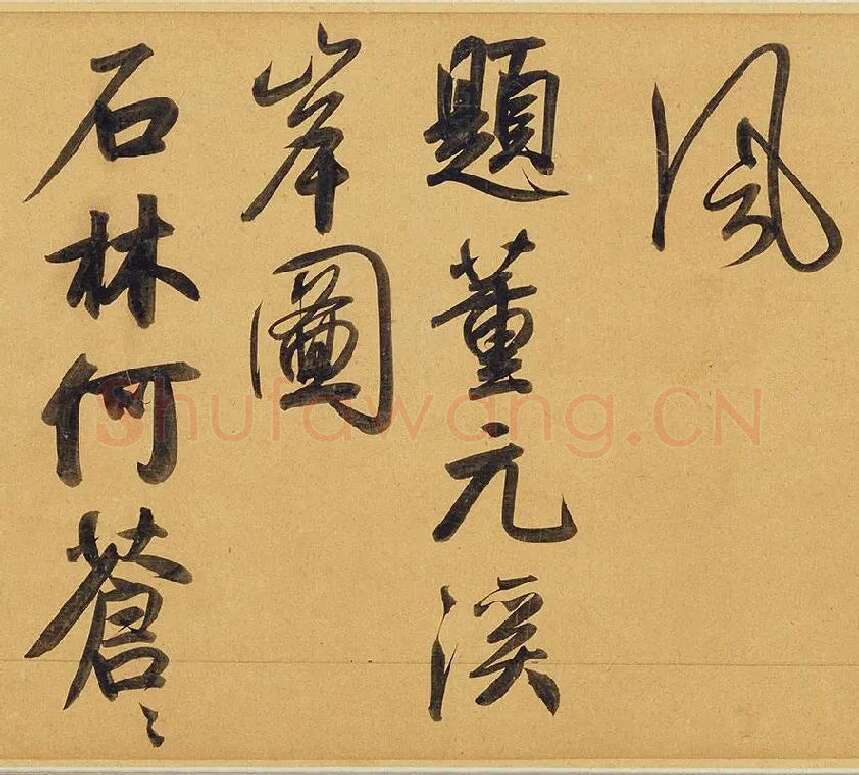 風
題董元溪
岸圖
石林何蒼々
Shufawang.CN